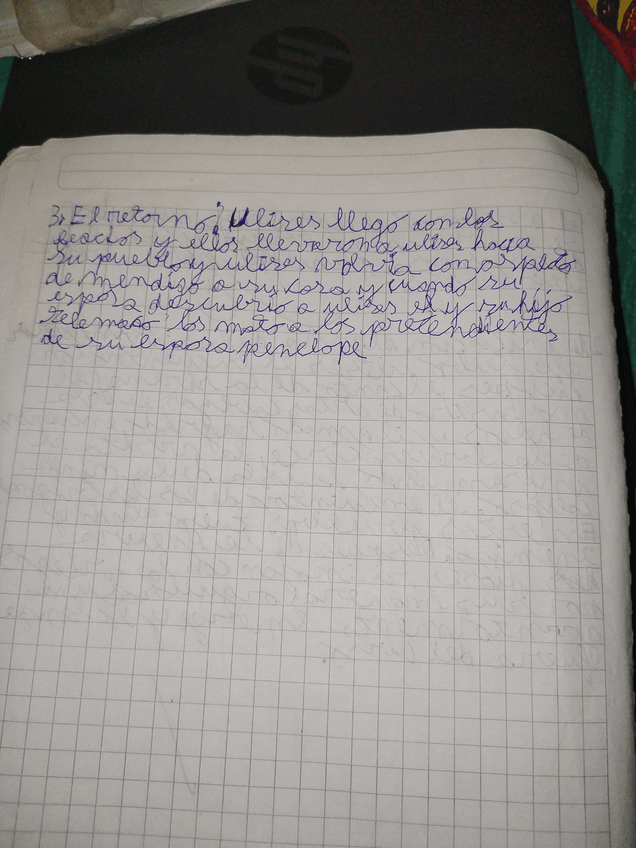 hp
3, El retorno; Ulises llego con los
feacios y ellos llevaron a ulises hacia
su pueblo y ulises volvia con aspecto
de mendigo a su casa y cuando su
esposa descubrio a ulises el y su hijo
telemaco los mato a los pretendientes
de su esposa penelope